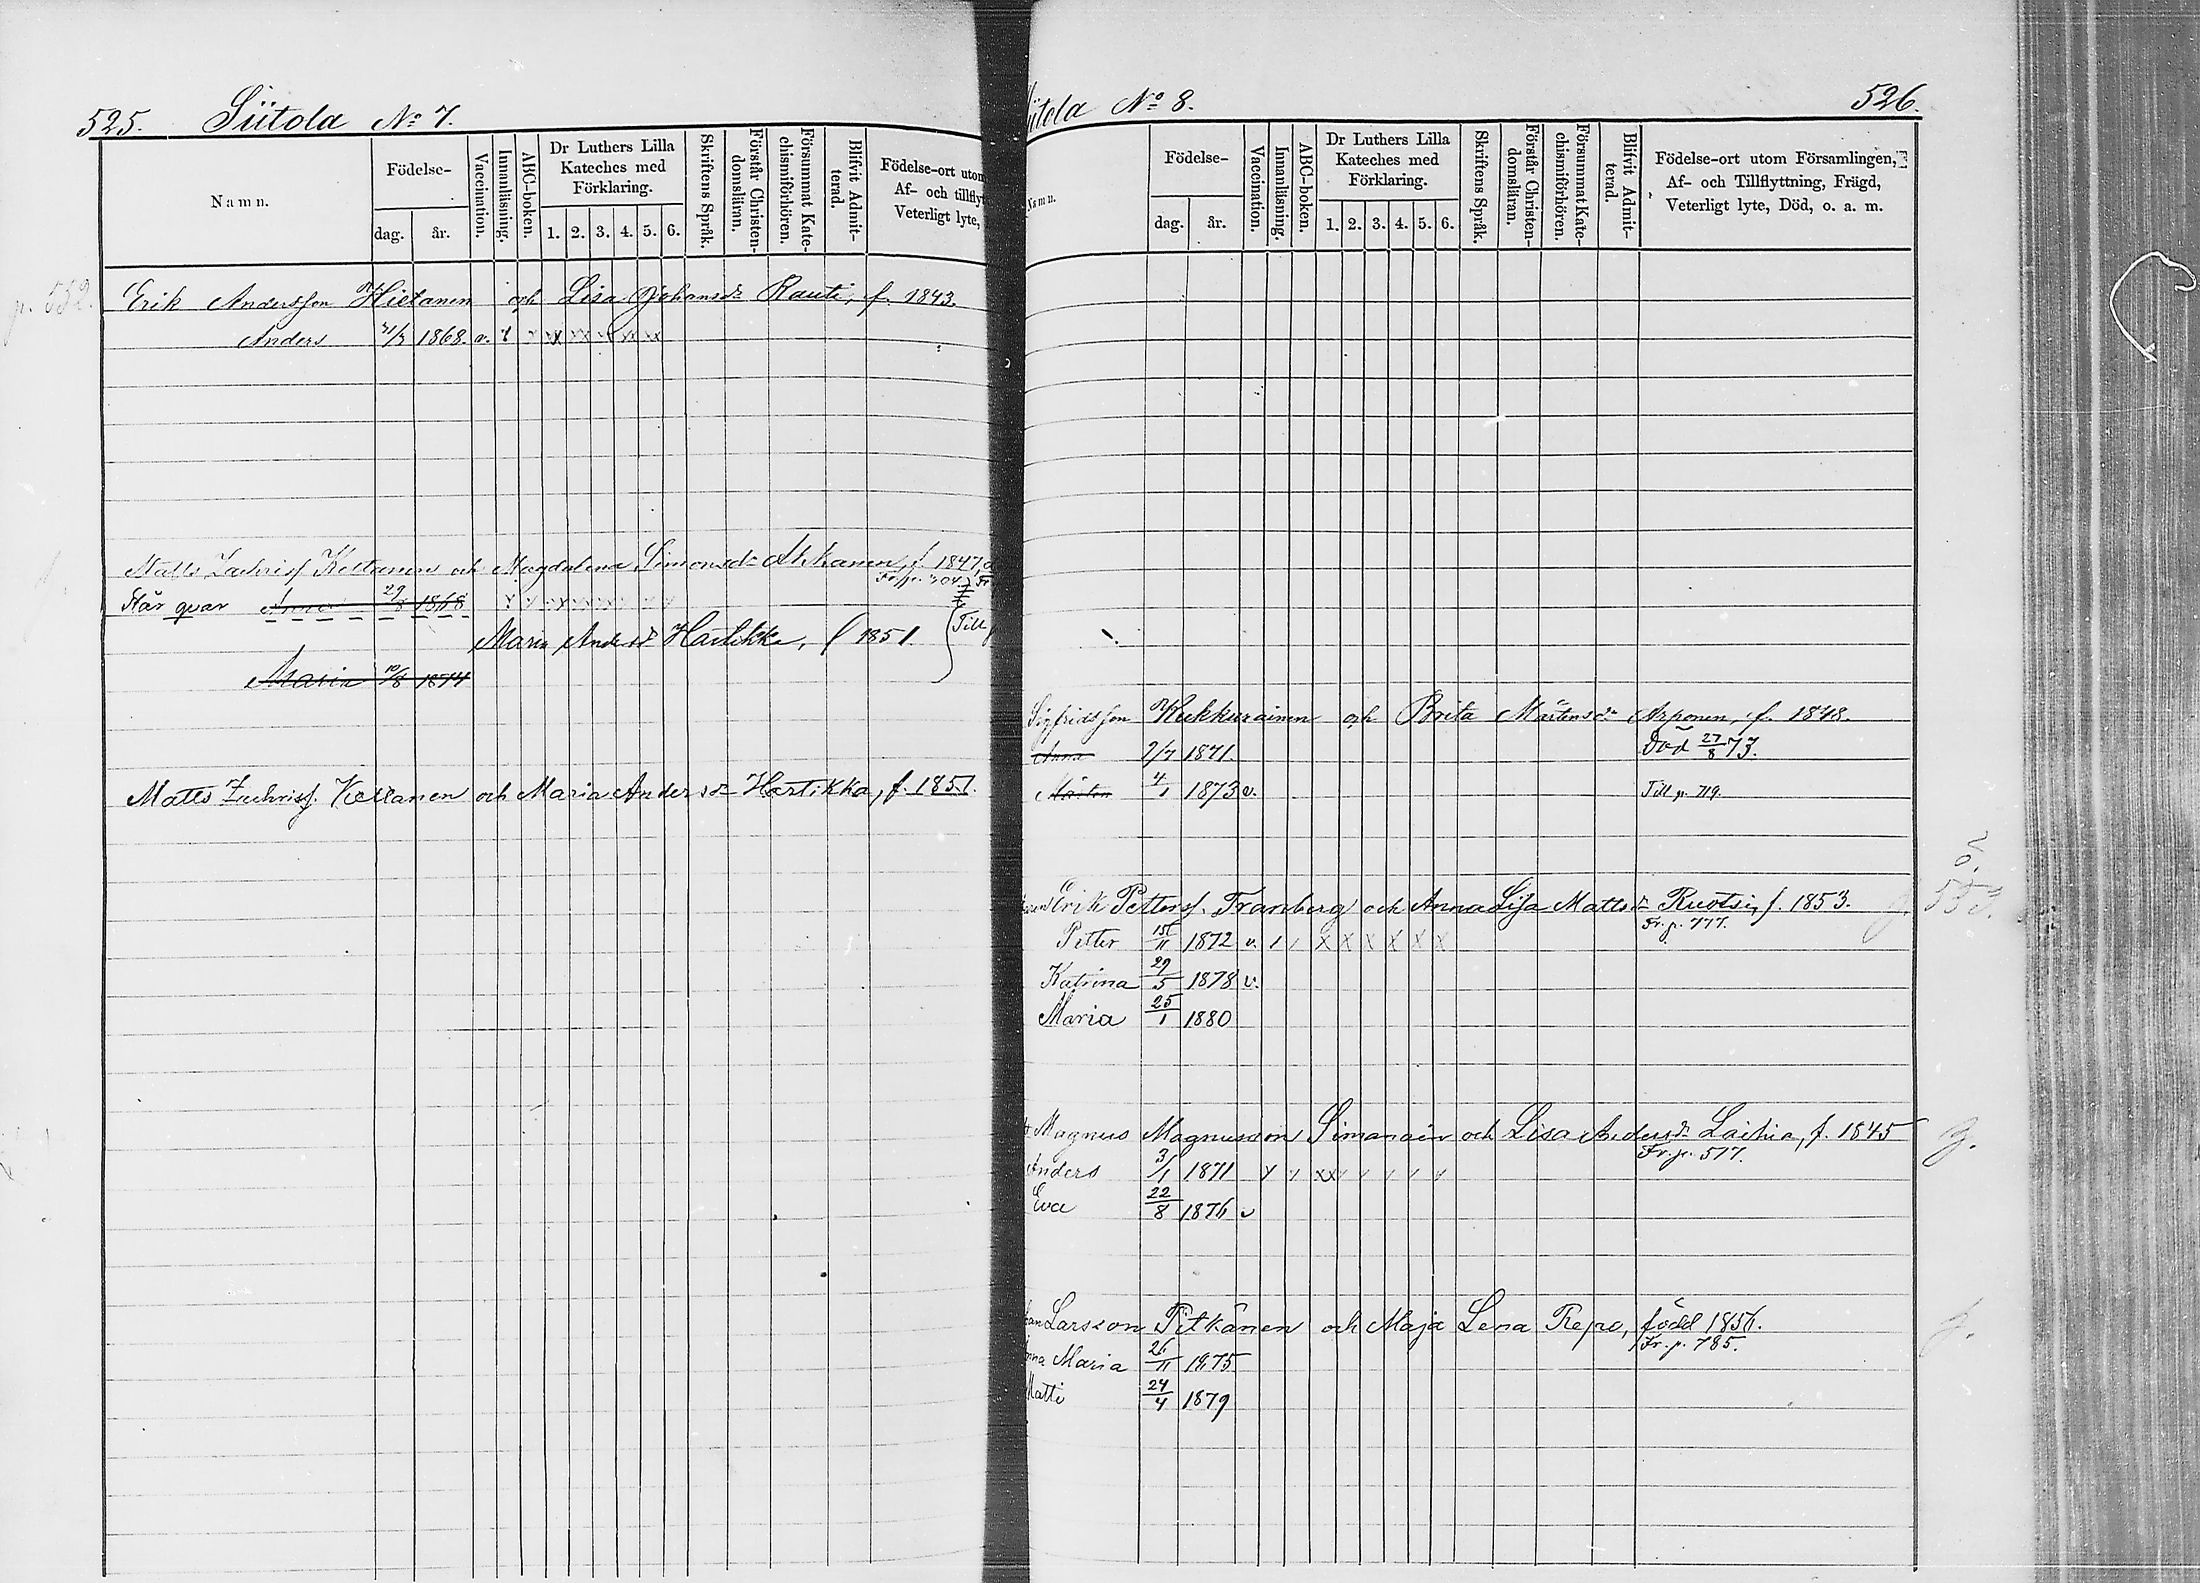 525. Siitola No 7.
Namn. Födelse- dag. år. Vaccination. Innanläsning. ABC-boken. Dr Luthers Lilla Kateches med Förklaring. 1. 2. 3. 4. 5. 6. Skriftens Språk. Förstår Christendomsläran. Försummat Katechismiförhören. Blifvit Admitterad. Födelse-ort utom
Af- och tillfly
Veterligt lyte,
p. 532. Erik Andersson Hietanen och Lisa Johansdr Rauti, f. 1843.
Anders 1868. v.
Matts Zachriss. Keltanen och Magdalena Simonsdr Ahkanen, f. 1847,
Står qvar Anna 29/8 1868
Maria Andersdr Hartikka, f 1851. Till
Maria 10/8 1874
Matts Zachriss. Keltanen och Maria Andersdr Hartikka, f. 1851.
iitola No 8. 526.
Namn. Födelse- dag. år. Vaccination. Innanläsning. ABC-boken. Dr Luthers Lilla Kateches med Förklaring. 1. 2. 3. 4. 5. 6. Skriftens Språk. Förstår Christendomsläran. Försummat Katechismiförhören. Blifvit Admitterad. Födelse-ort utom Församlingen,
Af- och Tillflyttning, Frägd,
Veterligt lyte, Död, o. a. m.
Sigfridsson Kukkurainen och Brita Mårtensdr Arponen, f. 1848.
Anna 2/7 1871. Död 27/8 73.
Mårten 4/1 1873 v. Till p. 719.
Erik Petterss. Framberg och Anna Lisa Mattsdr Ruotsi, f. 1853. 533.
Fr. p. 777.
Petter 15/11 1872 v. x x x x x x
Katrina 29/5 1878 v.
Maria 25/1 1880
Magnus Magnusson Simanain och Lisa Andersdr Laihia, f. 1845
Fr. p. 517.
Anders 3/1 1871
Eva 22/8 1876 v
Larsson Pitkänen och Maja Lena Repo, född 1856.
Fr. p. 785.
nna Maria 26/11 1875
Matti 24/4 1879